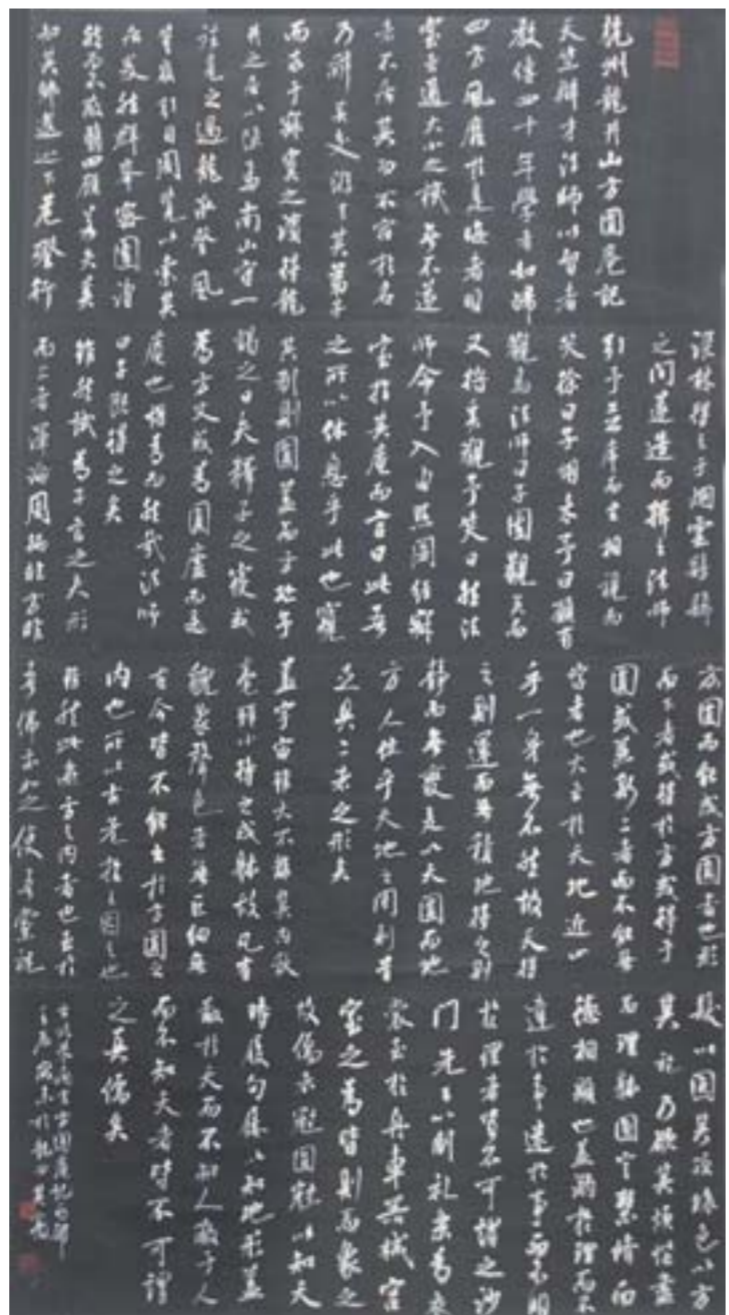 杭州龍井山方圓庵記
天竺辯才法師以智者
教傳四十年學者如歸
四方風靡於是晦者明
窒者通大小之機無不遂
者不居其功不宿於名
乃辭其交游去其弟子
而求于寂寞之濱得龍
井之居以隱焉南山守一
往見之過龍泓登風
篁嶺引目周覽以索其
居岌然群峰密圍溶
然不蔽翳四顧若失莫
知其鄉逡巡下危磴行
深林得之于烟雲髣髴
之間遂造而揖之法師
引予並席而坐相視而
笑徐曰子胡来予曰願有
觀焉法師曰子固觀矣而
又將奚觀予笑曰然法
師命予入由照閣經寂
室指其庵而言曰此吾
之所以休息乎此也窺
其制則圓蓋而方址予
謁之曰夫釋子之寢或
為方丈或為圓廬而是
庵也胡為而然哉法師
曰子既得之矣
雖然試為子言之夫形
而上者渾淪周徧非方非
方圓而能成方圓者也形
而下者或得於方或得于
圓或兼斯二者而不能無
悖者也大至於天地近止
乎一身無不然故天得
之則運而無積地得之則
靜而無變是以天圓而地
方人位乎天地之間則首
足具二者之形矣
蓋宇宙雖大不離其內秋
毫雖小待之成體故凡有
貌象聲色者無巨細無
古今皆不能出於方圓之
內也所以古先哲王因之也
雖然此游方之內者也至於
吾佛亦如之使吾黨祝
髮以圓其頂壞色以方
其袍乃欲其煩惱盡
而理體圓定慧修而
德相顯也蓋溺於理而不
達於事迷於事而不明
於理者皆不可謂之沙
門先王以制禮樂為衣
裳至於舟車器械宮
室之為皆則而象之
故儒者冠圜冠以知天
時履句屨以知地形蓋
蔽於天而不知人蔽于人
而不知天者皆不可謂
之真儒矣